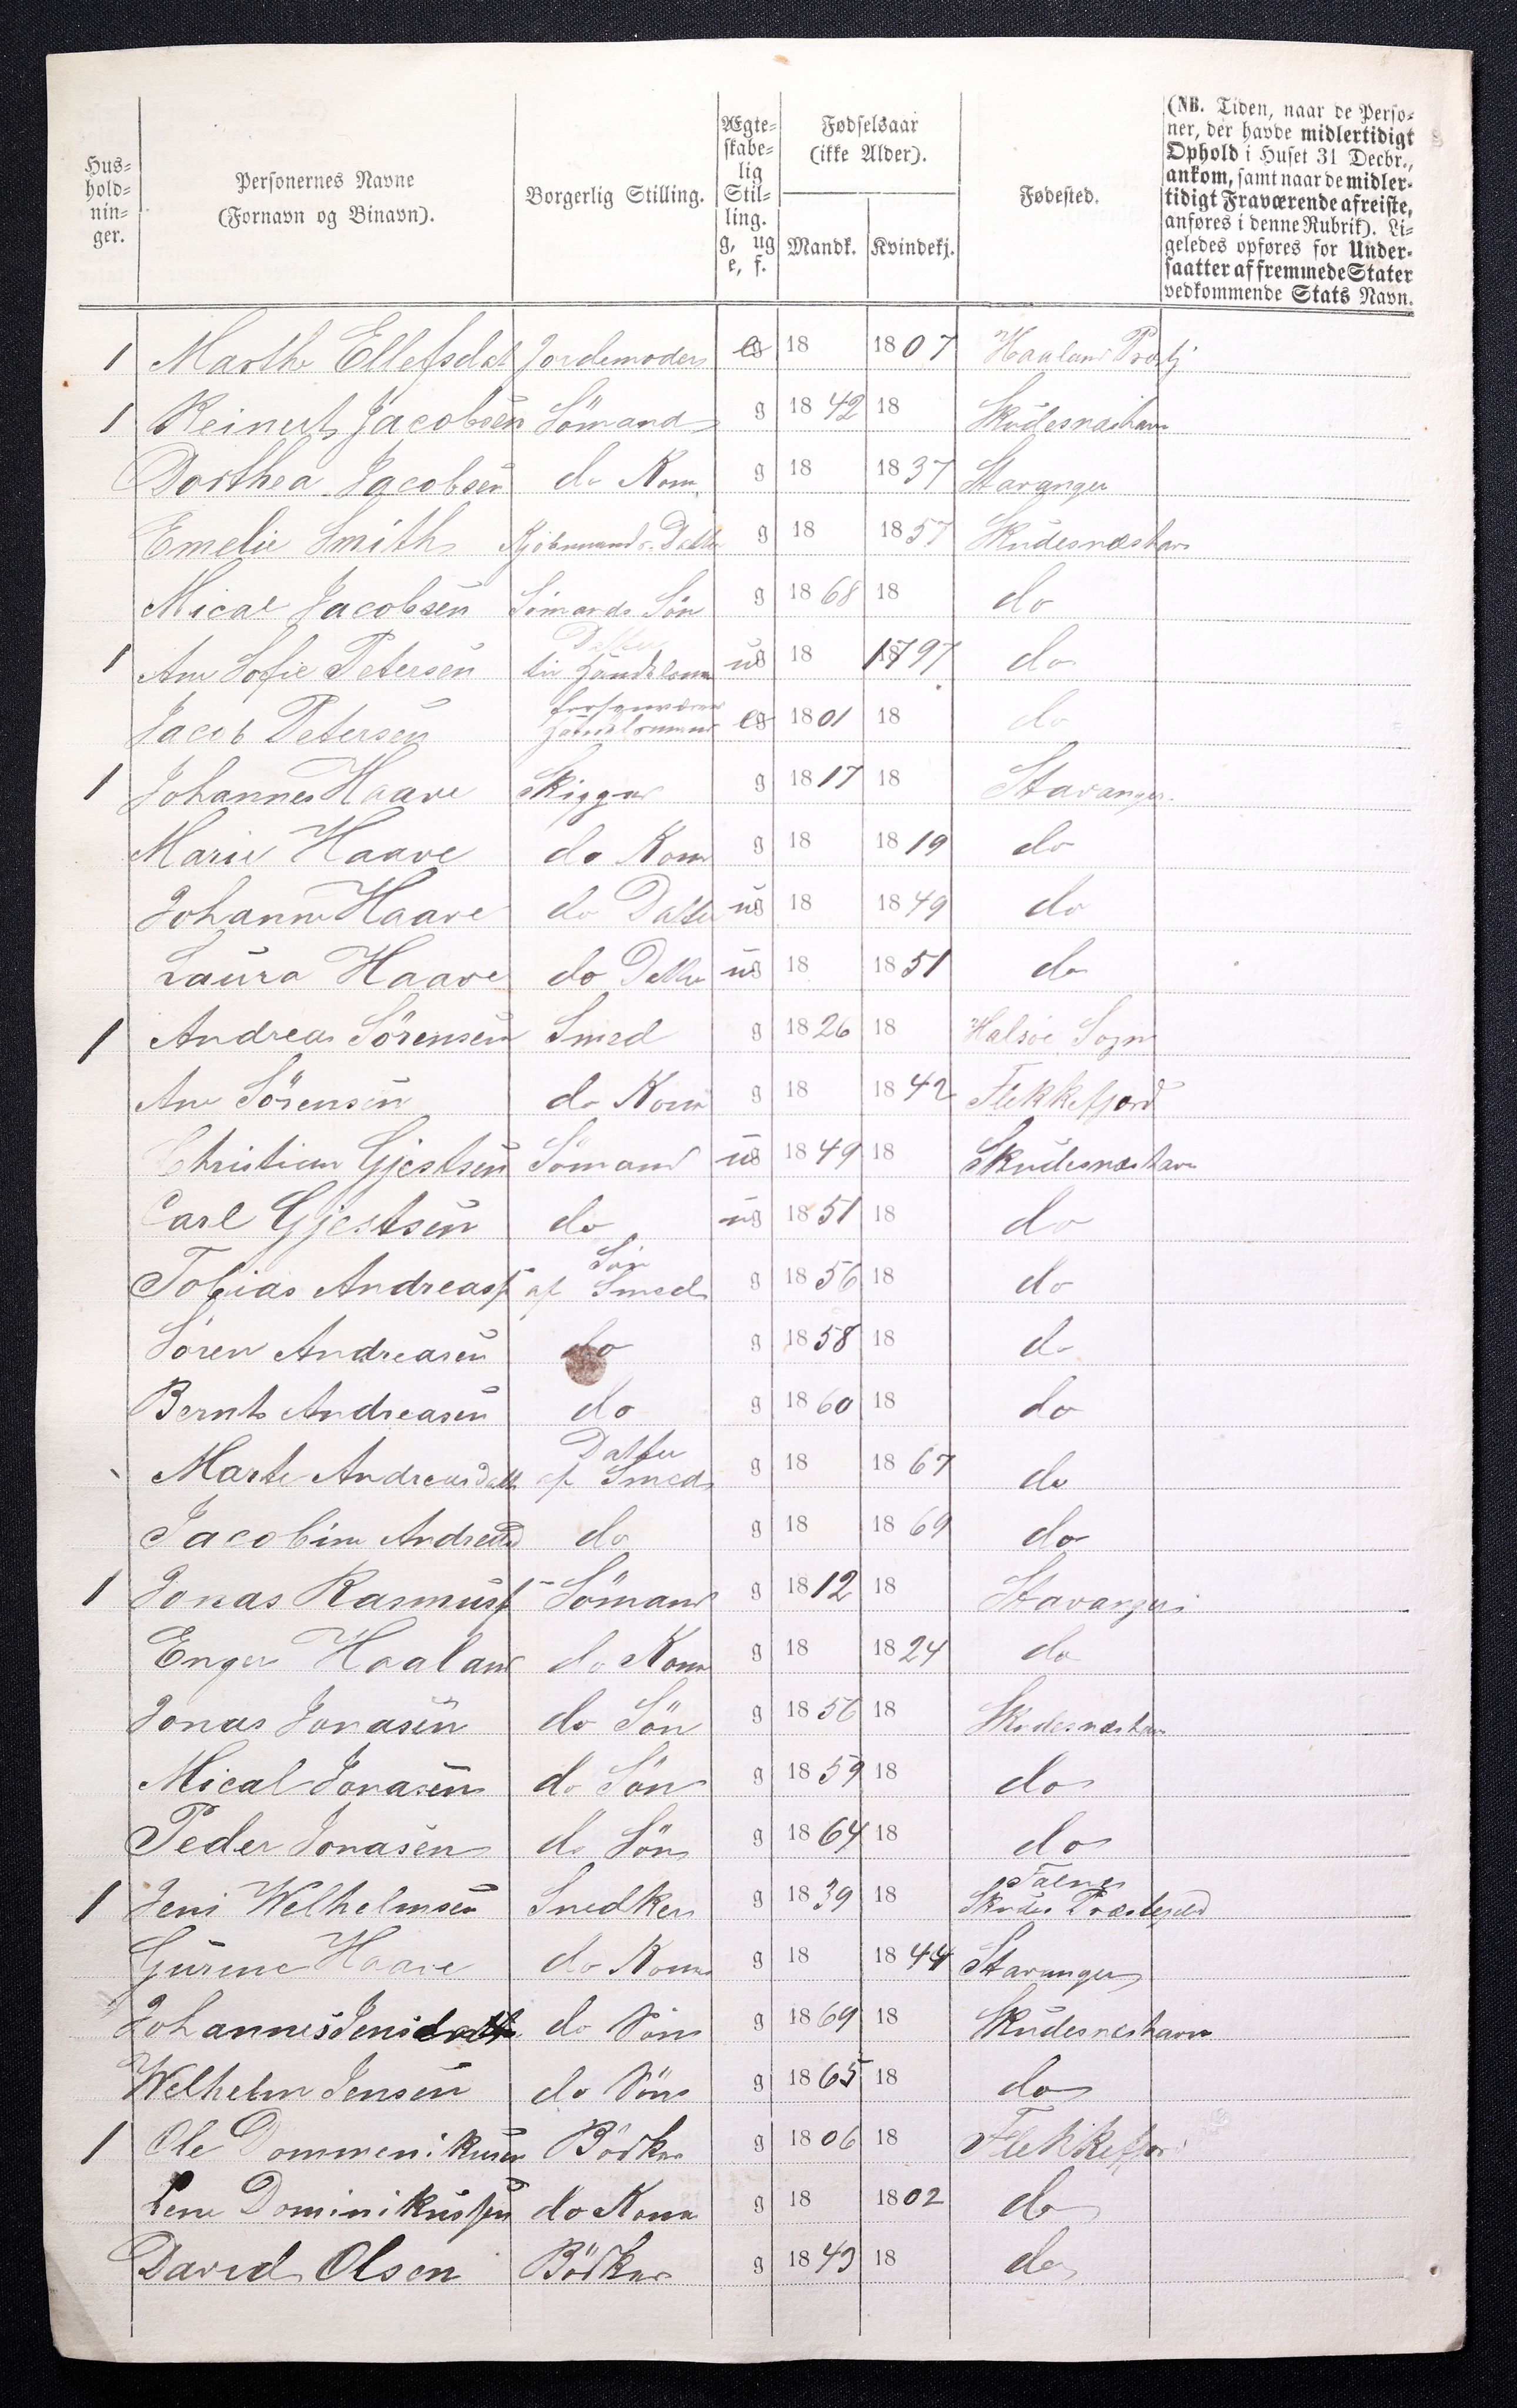 Hus-
hold-
nin-
ger.
Personernes Navne
(Fornavn og Binavn).
Borgerlig Stilling.
Ægte-
skabe-
lig
Stil-
ling.
g, ug
e, f.
Fødselsaar
(ikke Alder).
Mandk. Kvindekj.
Fødested.
(NB. Tiden, naar de Perso-
ner, der havde midlertidigt
Ophold i Huset 31 Decbr.,
ankom, samt naar de midler-
tidigt Fraværende afreiste,
anføres i denne Rubrik). Li-
geledes opføres for Under-
saatter af fremmede Stater
vedkommende Stats Navn.
1 Marthe Ellefsdat Jordemoder eg 18 1807 Haaland
1 Reinert Jacobsen Sömand g 1842 18 Skudesnæshavn
Dorthea Jacobsen do Kone g 18 1837 Stavanger
Emelie Smith Kjöbmands Datter g 18 1857 Skudesnæshavn
Mical Jacobsen Sömands Sön g 1868 18 do
Datter
1 Ane Sofie Petersen ug 18 1797 do
Jacob Petersen eg 1801 18 do
1 Johannes Haave Skipper g 1817 18 Stavanger
Marie Haave do Kone g 18 1819 do
Johanne Haave do Datter ug 18 1849 do
Laura Haave do Datter ug 18 1851 do
1 Andreas Sörensen Smed g 1826 18 Halsöe Sogn
Ane Sörensen do Kone g 18 1842 Flekkefjord
Christian Gjestsen Sömand ug 1849 18 Skudesnæshavn
Carl Gjestsen do ug 1851 18 do
Sön
Tobias Andreass af Smed g 1856 18 do
Sören Andreasen do g 1858 18 do
Bernt Andreasen do g 1860 18 do
Datter
Marte Andreasdatt af Smed g 18 1867 do
Jacobine Andreasd do g 18 1869 do
1 Jonas Rasmuss Sömand g 1812 18 Stavanger
Enger Haaland do Kone g 18 1824 do
Jonas Jonasen do Sön g 1856 18 Skudesnæshavn
Mical Jonasen do Sön g 1859 18 do
Peder Jonasen do Sön g 1864 18 do
Falnes
1 Jens Welhelmsen Snedker g 1839 18 Skudes Præstegjeld
Gurine Haave do Kone g 18 1844 Stavanger
Johannes do Sön g 1869 18 Skudesneshavn
Welhelm Jensen do Sön g 1865 18 do
1 Ole Dommenikusen Bödker g 1806 18 Flekkefjord
Lene Dominikussen do Kone g 18 1802 do
David Olsen Bödker g 1843 18 do